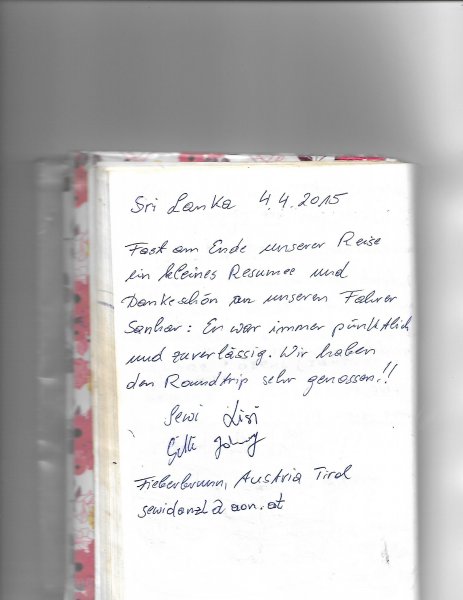 Sri Lanka 4.4.2015
Fast am Ende unserer Reise
ein kleines Resumee und
Dankeschön an unseren Fahrer
Sankar: Er war immer pünktlich
und zuverlässig. Wir haben
den Roundtrip sehr genossen!!
Sewi Lisi
Fieberbrunn, Austria Tirol
sewidanzl@aon.at